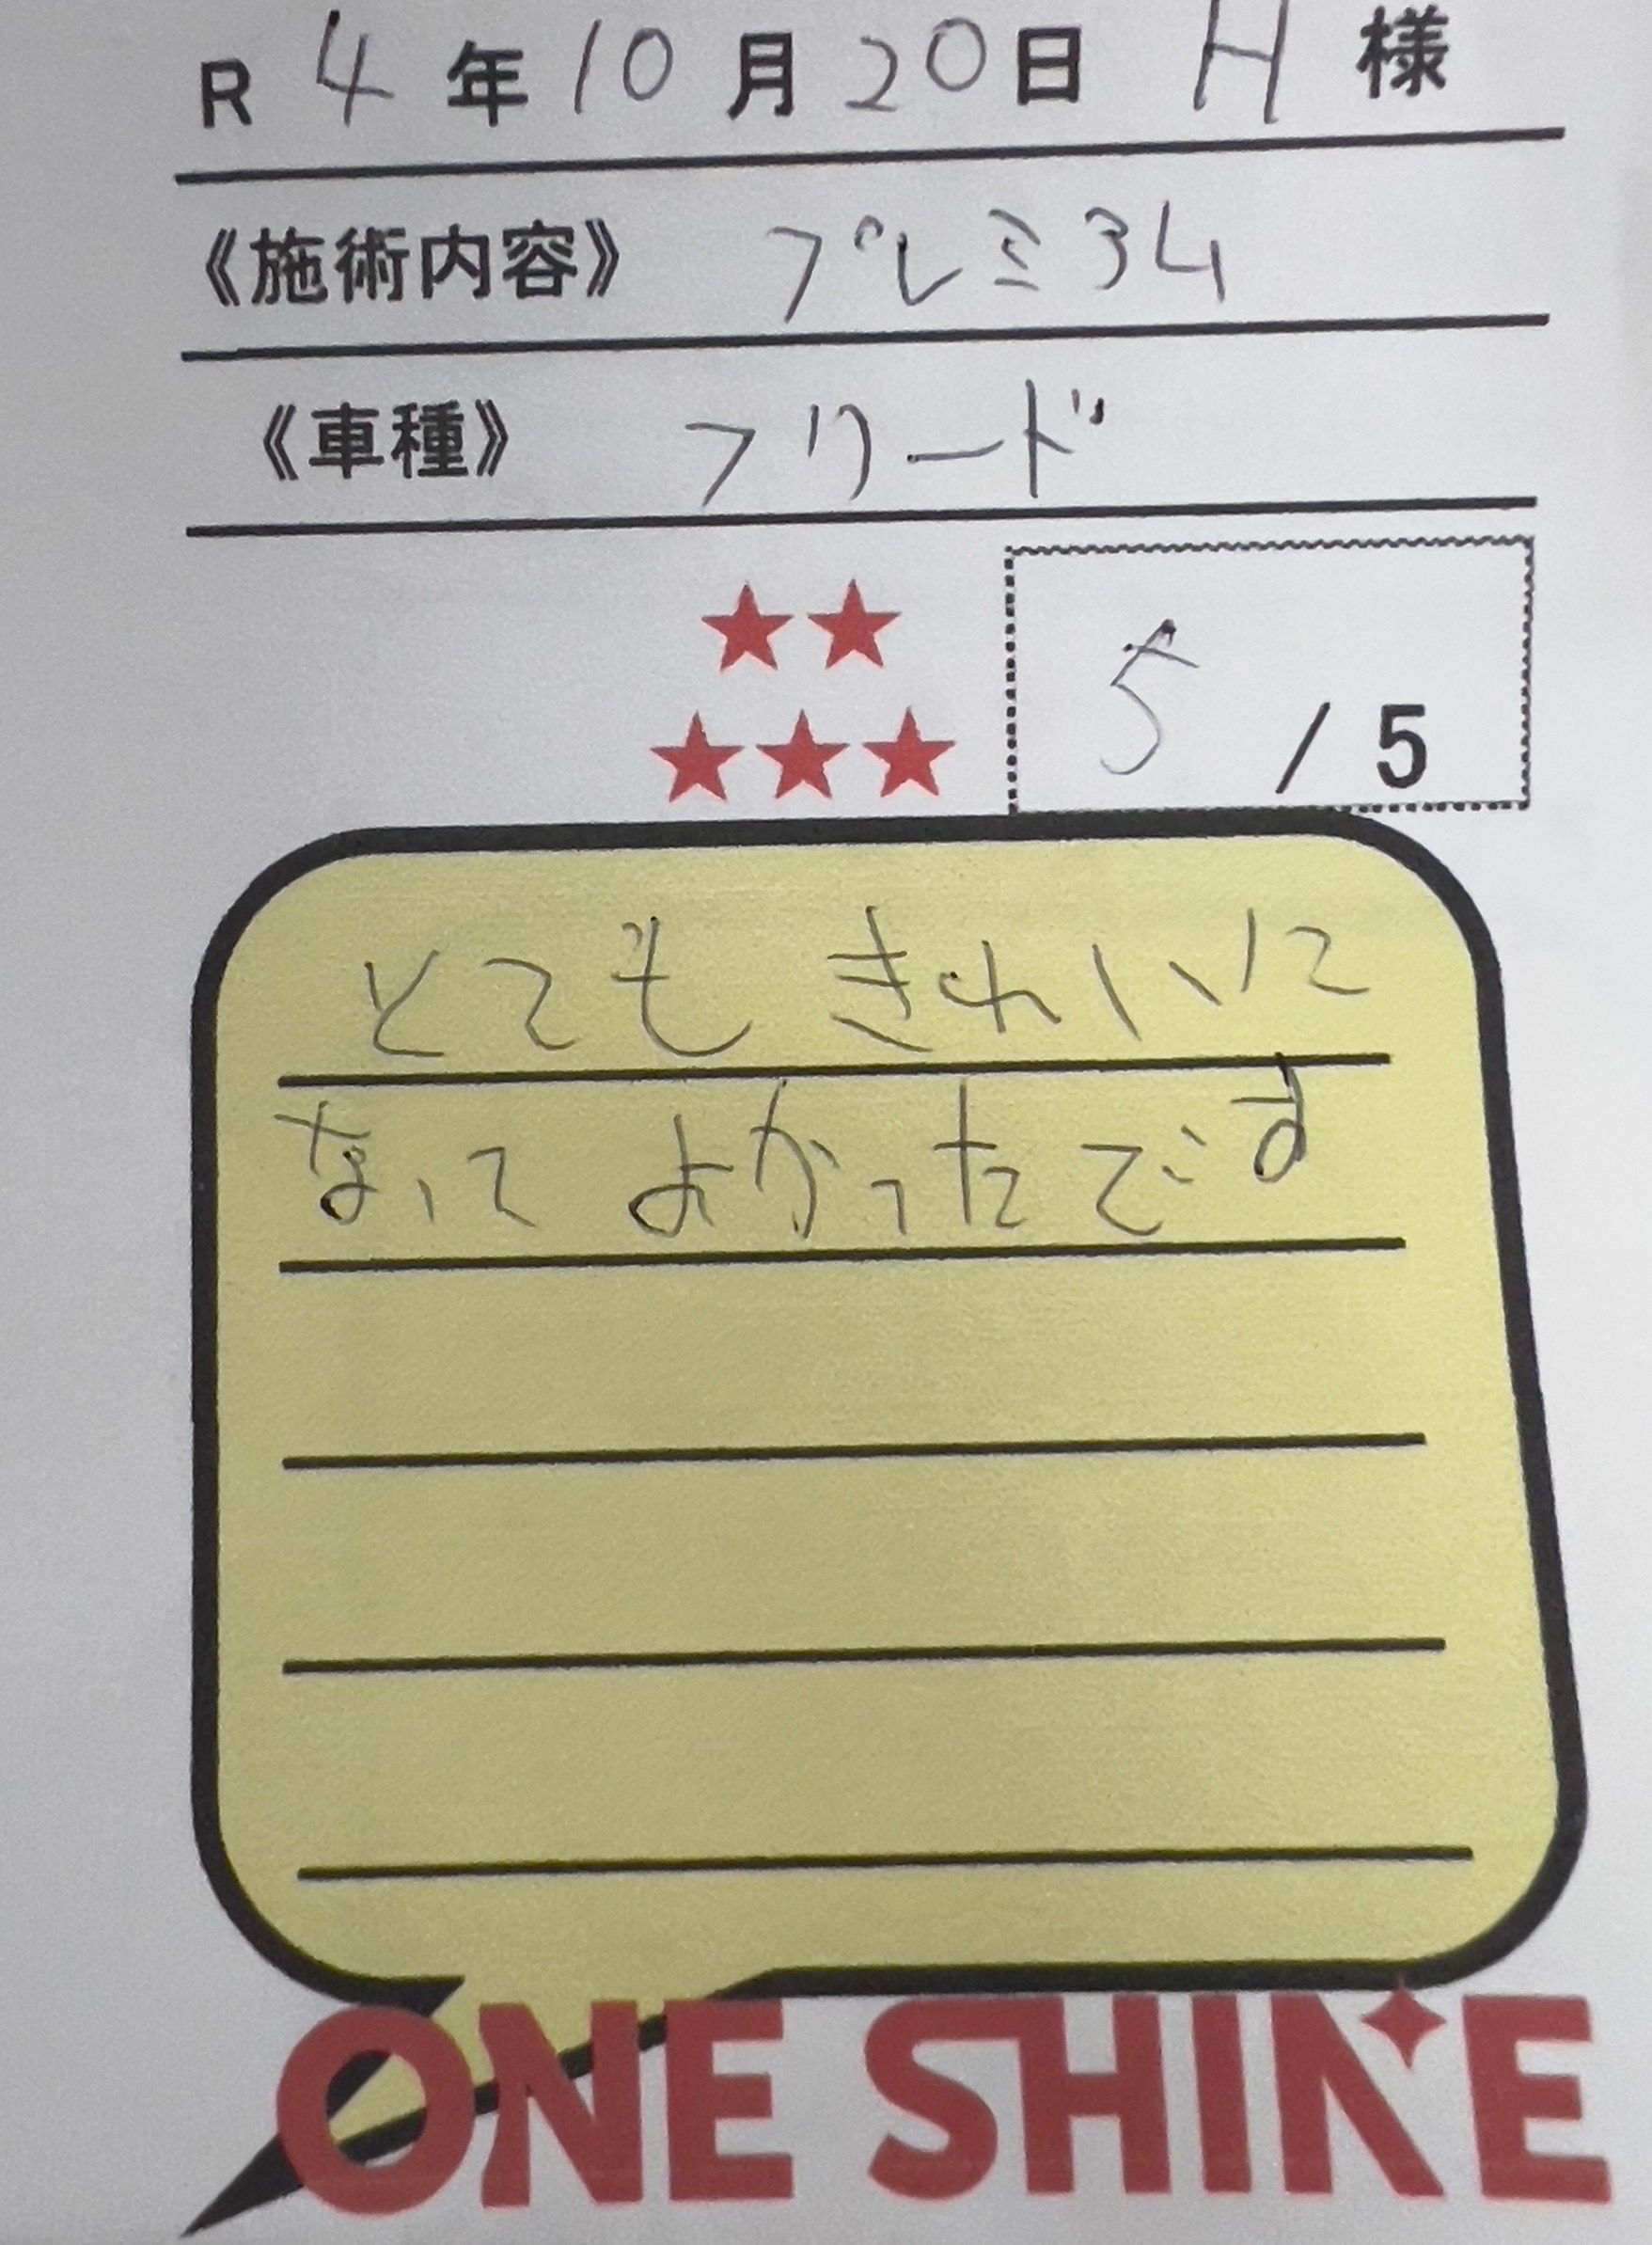 R 4 年 10 月 20 日 H 様
《施術内容》 プレミアム
《車種》 フリード
★★
★★★
5 / 5
とても きれいに
なって よかったです
ONE SHINE